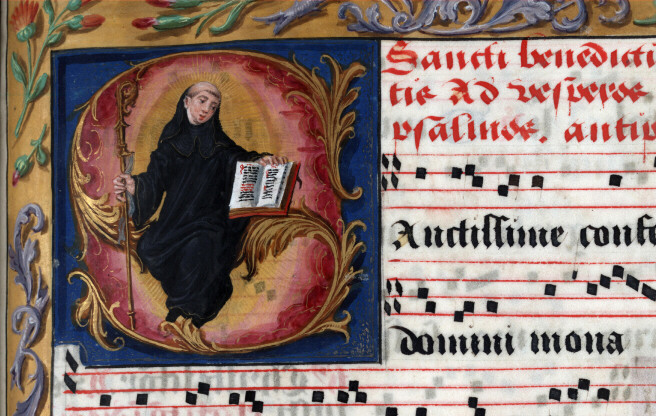 Sancti benedicti
tis Ad vesperos
psalmos. antip
Anctissime confe
domini mona